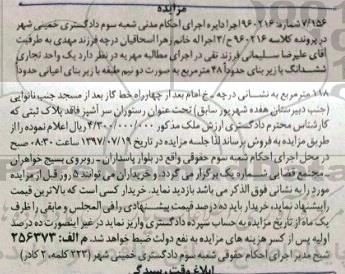 مزایده
۷/۱۵۶ شماره ۹۶۰۲۱۶ اجرا دایره اجرای احکام مدنی شعبه سوم دادگستری خمینی شهر
در پرونده کلاسه ۹۶۰۲۱۶ ح/۳ اجرا له خانم زهرا اسحاقیان درچه فرزند مهدی به طرفیت
آقای علیرضا سلیمانی فرزند نقی در اجرای مطالبه مهریه در نظر دارد یک واحد تجاری
ششدانگ با زیر بنای حدوداً ۴۸ مترمربع به صورت دو نیم طبقه با زیر بنای اعیانی حدوداً
۱۱۸ مترمربع به نشانی درچه ـ خ امام بعد از چهارراه خط گاز بعد از مسجد جنب نانوایی
(جنب دبیرستان هفده شهریور سابق) تحت عنوان رستوران سر آشپز فاقد پلاک ثبتی که
کارشناس محترم دادگستری ارزش ملک مذکور ۴/۳۰۰/۰۰۰/۰۰۰ ریال اعلام نموده را از
طریق مزایده به فروش برساند لذا جلسه مزایده در تاریخ ۱۳۹۷/۰۷/۱۹ ساعت ۰۸:۳۰ صبح
در محل اجرای احکام شعبه سوم حقوقی واقع در بلوار پاسداران ـ روبروی بسیج خواهران
ـ مجتمع قضایی شماره یک برگزار می گردد. و خریداران می توانند ۵ روز قبل از مزایده
مورد را به نشانی فوق الذکر می باشد بازدید نماید. خریدار کسی است که بالاترین قیمت
را پیشنهاد نماید، خریدار باید ده درصد قیمت پیشنهادی را فی المجلس و مابقی را ظرف
یک ماه از تاریخ مزایده به حساب سپرده دادگستری واریز نماید در غیر اینصورت ده درصد
اولیه پس از کسر هزینه های مزایده به نفع دولت ضبط خواهد شد. م الف: ۲۵۶۳۷۳
شیخ مدیر اجرای احکام حقوقی شعبه سوم دادگستری خمینی شهر (۲۲۳ کلمه، ۲ کادر)
ابلاغ وقت رسیدگی